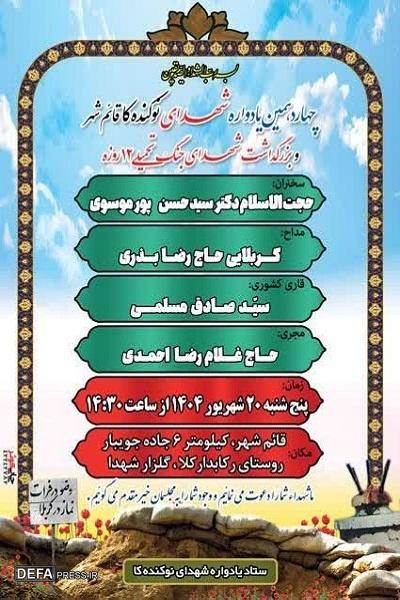 بسم رب الشهداء و الصدیقین
چهاردهمین یادواره شهدای نوکنده کا قائم شهر
و بزرگداشت شهدای جنگ تحمیلی ۱۲ روزه
سخنران:
حجت الاسلام دکتر سید حسن پور موسوی
مداح:
کربلایی حاج رضا بذری
قاری کشوری:
سیّد صادق مسلمی
مجری:
حاج غلام رضا احمدی
زمان:
پنج شنبه ۲۰ شهریور ۱۴۰۴ از ساعت ۱۴:۳۰
مکان:
قائم شهر، کیلومتر ۶ جاده جویبار
روستای رکابدارکلا، گلزار شهدا
ما شهداء شما را دعوت می نمائیم و وجود شما را به مجلسمان خیر مقدم می گوئیم.
وضو در فرات
نماز در کربلا
ستاد یادواره شهدای نوکنده کا
DEFAPRESS.IR